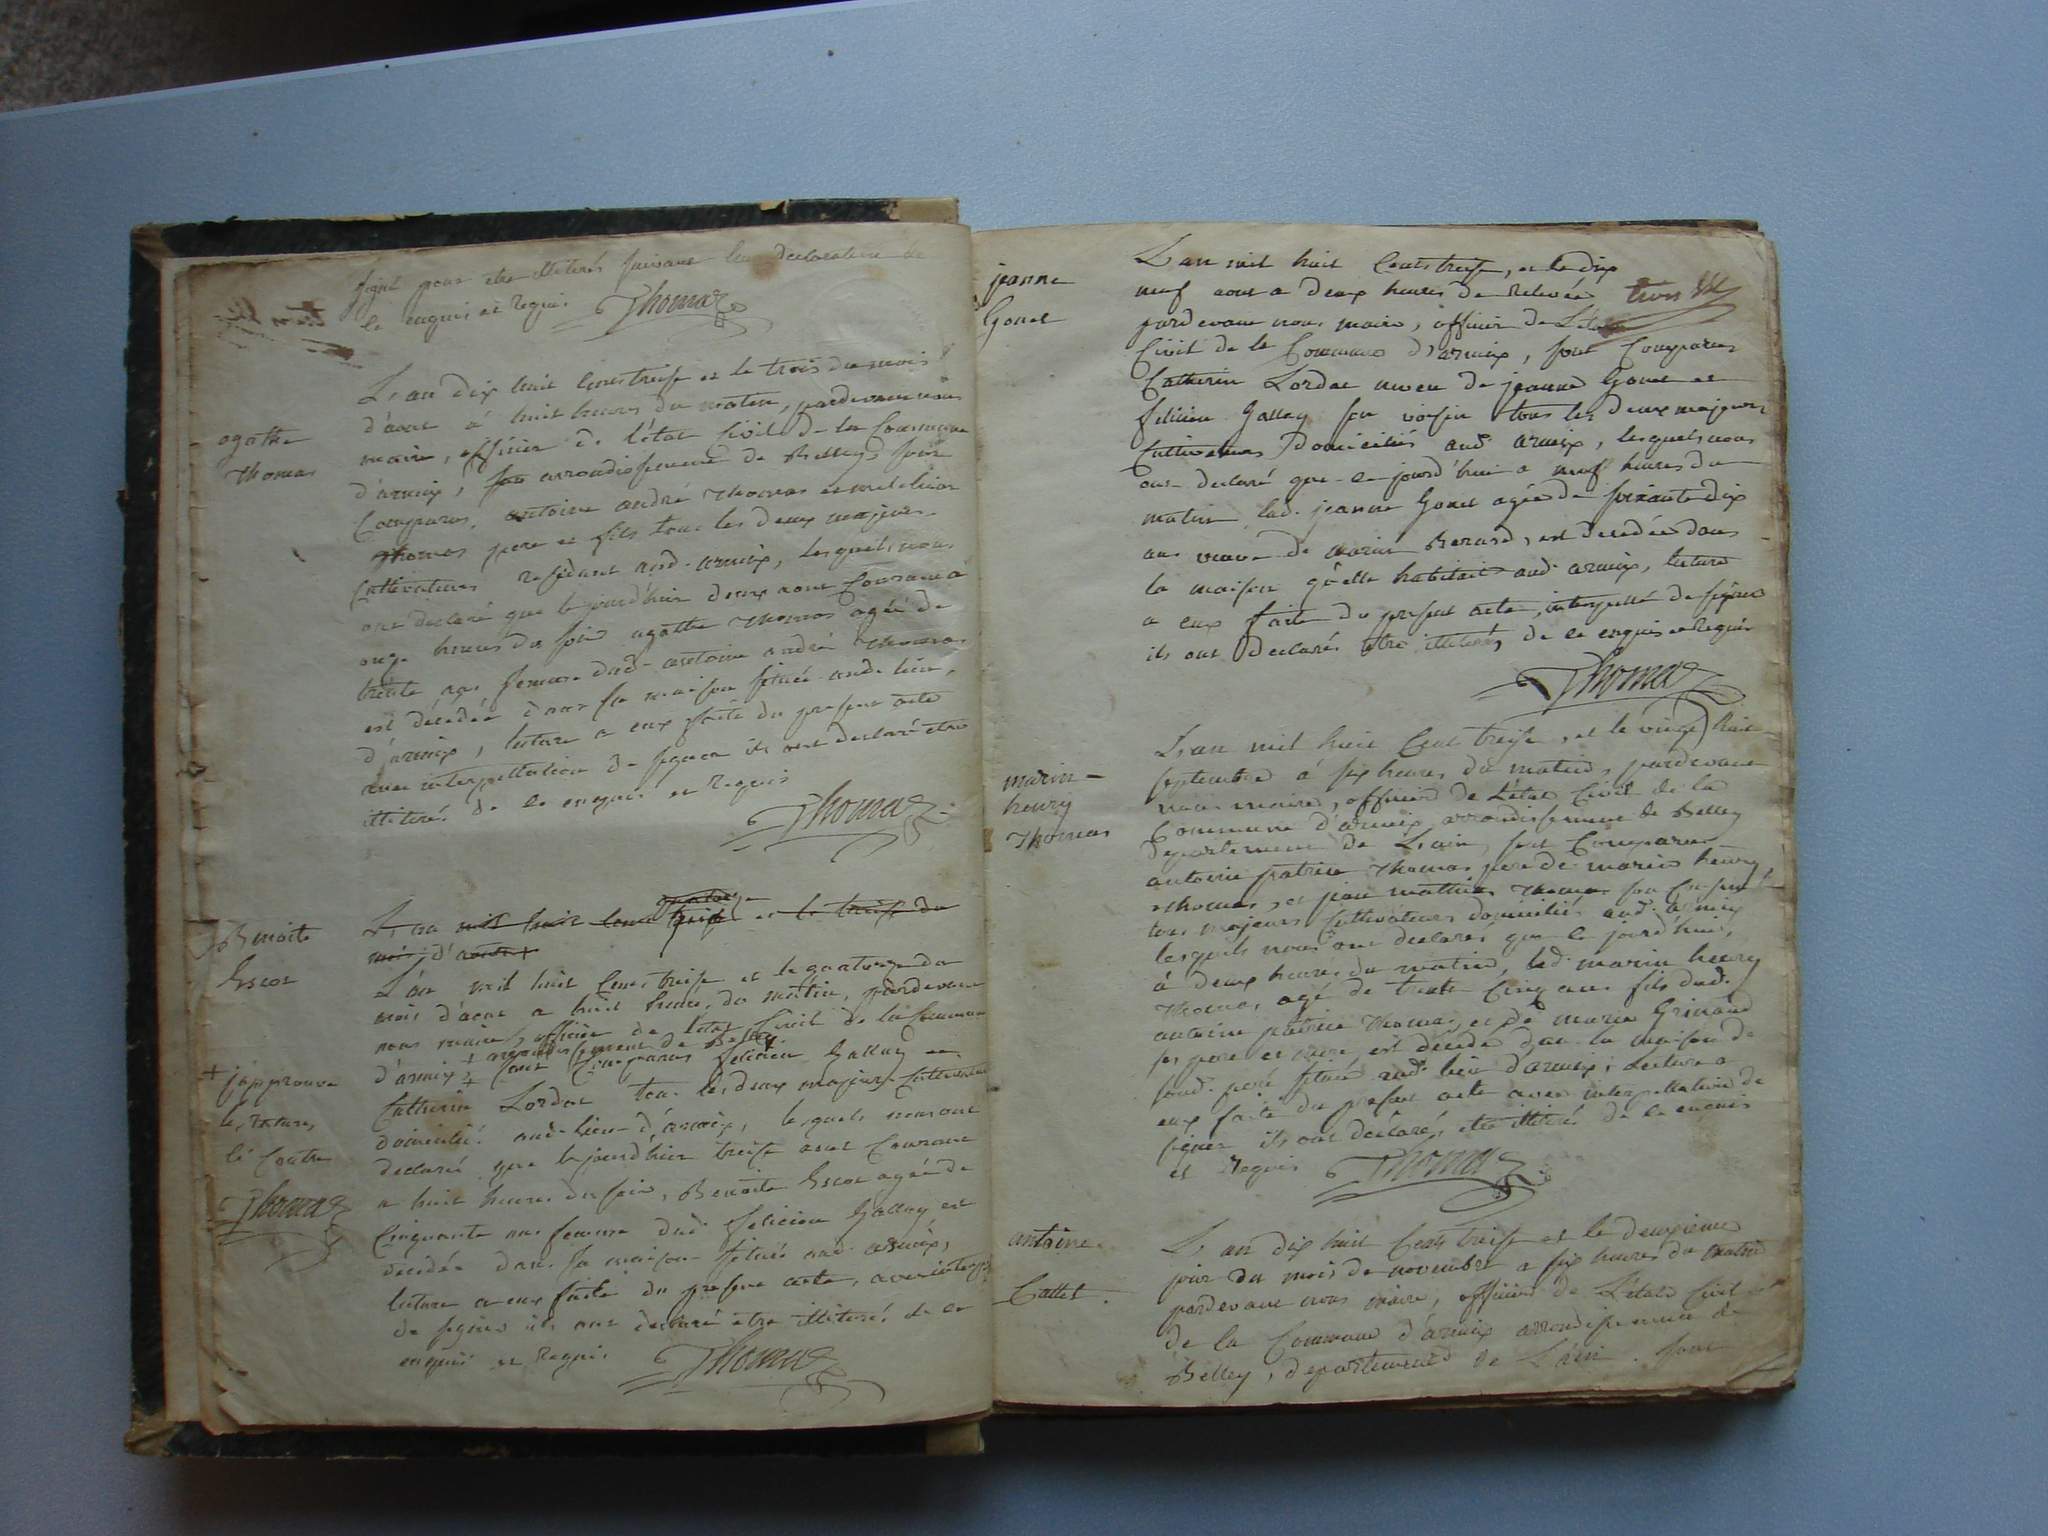 signé pour être illiterés suivant leur declaration de
ce enquis et requis Thomas
agathe
Thomas
L'an dix huit cent treise et le trois du mois
d'aout à huit heures du matin, pardevant nous
maire, officier de l'état Civil de la Commune
d'armix, arrondissement de Belley, sont
Comparus, antoine andré Thomas et melchior
Thomas pere et fils tous les deux majeurs
Cultivateurs residant aud. armix, lesquels nous
ont declaré que le jourdhier deux aout Courant à
onze heures du soir agathe Thomas agée de
trente ans femme dud. antoine andré Thomas
est décédée dans sa maison située aud. lieu
d'armix, lecture a eux faite du present acte
avec interpellation de signer ils ont declaré etre
illiterés de ce enquis et requis
Thomas
Benoite
Escot
L'an mil huit cent treise et le treise du
quatorze
mois d'aout
L'an mil huit Cent treise et le quatorze du
mois d'aout a huit heures du matin, pardevant
nous maire, officier de l'etat Civil de la Commune
+ arrondissement de Belley
d'armix + sont Comparus felicien Gallay et
Catherin Lordat tous les deux majeurs Cultivateurs
domicilié aud. lieu d'armix, lesquels nous ont
declaré que le jourdhier treise aout Courant
a huit heures du soir, Benoite Escot agée de
Cinquante ans femme dud. felicien Gallay est
decidée dans sa maison située aud. armix,
lecture a eux faite du present acte, avec interp
de signer ils ont declaré etre illiterés de ce
enquis et requis Thomas
+ japprouve
la rature,
ci Contre
Thomas
jeanne
Gonet
L'an mil huit Cent treise, et le dix
neuf aout a deux heures de Relevée
pardevant nous maire, officier de L'etat
Civil de la Commune d'armix, sont Comparus
Catherin Lordat neveu de jeanne Gonet et
felicien Gallay son voisin tous les deux majeurs
Cultivateurs domiciliés aud. armix, lesquels nous
ont declaré que ce jourd'hui a neuf heures du
matin lad. jeanne Gonet agée de soixante dix
ans veuve de marin Berard, est decedée dans
la maison qu'elle habitait aud. armix, lecture
a eux faite du present acte, interpellé de signer
ils ont declarés etre illiterés, de ce enquis et Requis
Thomas
marin
henry
Thomas
L'an mil huit Cent treise, et le vingt huit
septembre à six heures du matin, pardevant
nous maire, officier de L'état Civil de la
Commune d'armix arrondissement de Belley
departement de L'ain, sont Comparus
antoine patrice Thomas pere de marin henry
Thomas, et jean mathieu Thomas son
tous majeurs Cultivateurs domiciliés aud. armix
lesquels nous ont declarés que ce jourd'hui,
à deux heures du matin, led. marin henry
Thomas agé de trente Cinq ans fils dud.
antoine patrice Thomas et de marie
ses pere et mere, est décédé dans la maison de
sond. pere située aud. lieu d'armix; Lecture a
eux faite du present acte avec interpellation de
signer ils ont declarés, etre illiterés de ce enquis
et Requis Thomas
antoine
Callet
L'an dix huit Cent treise et le deuxieme
jour du mois de novembre a six heures du matin
pardevant nous maire, officier de L'état Civil
de la Commune d'armix arrondissement de
Belley, departement de L'ain. sont